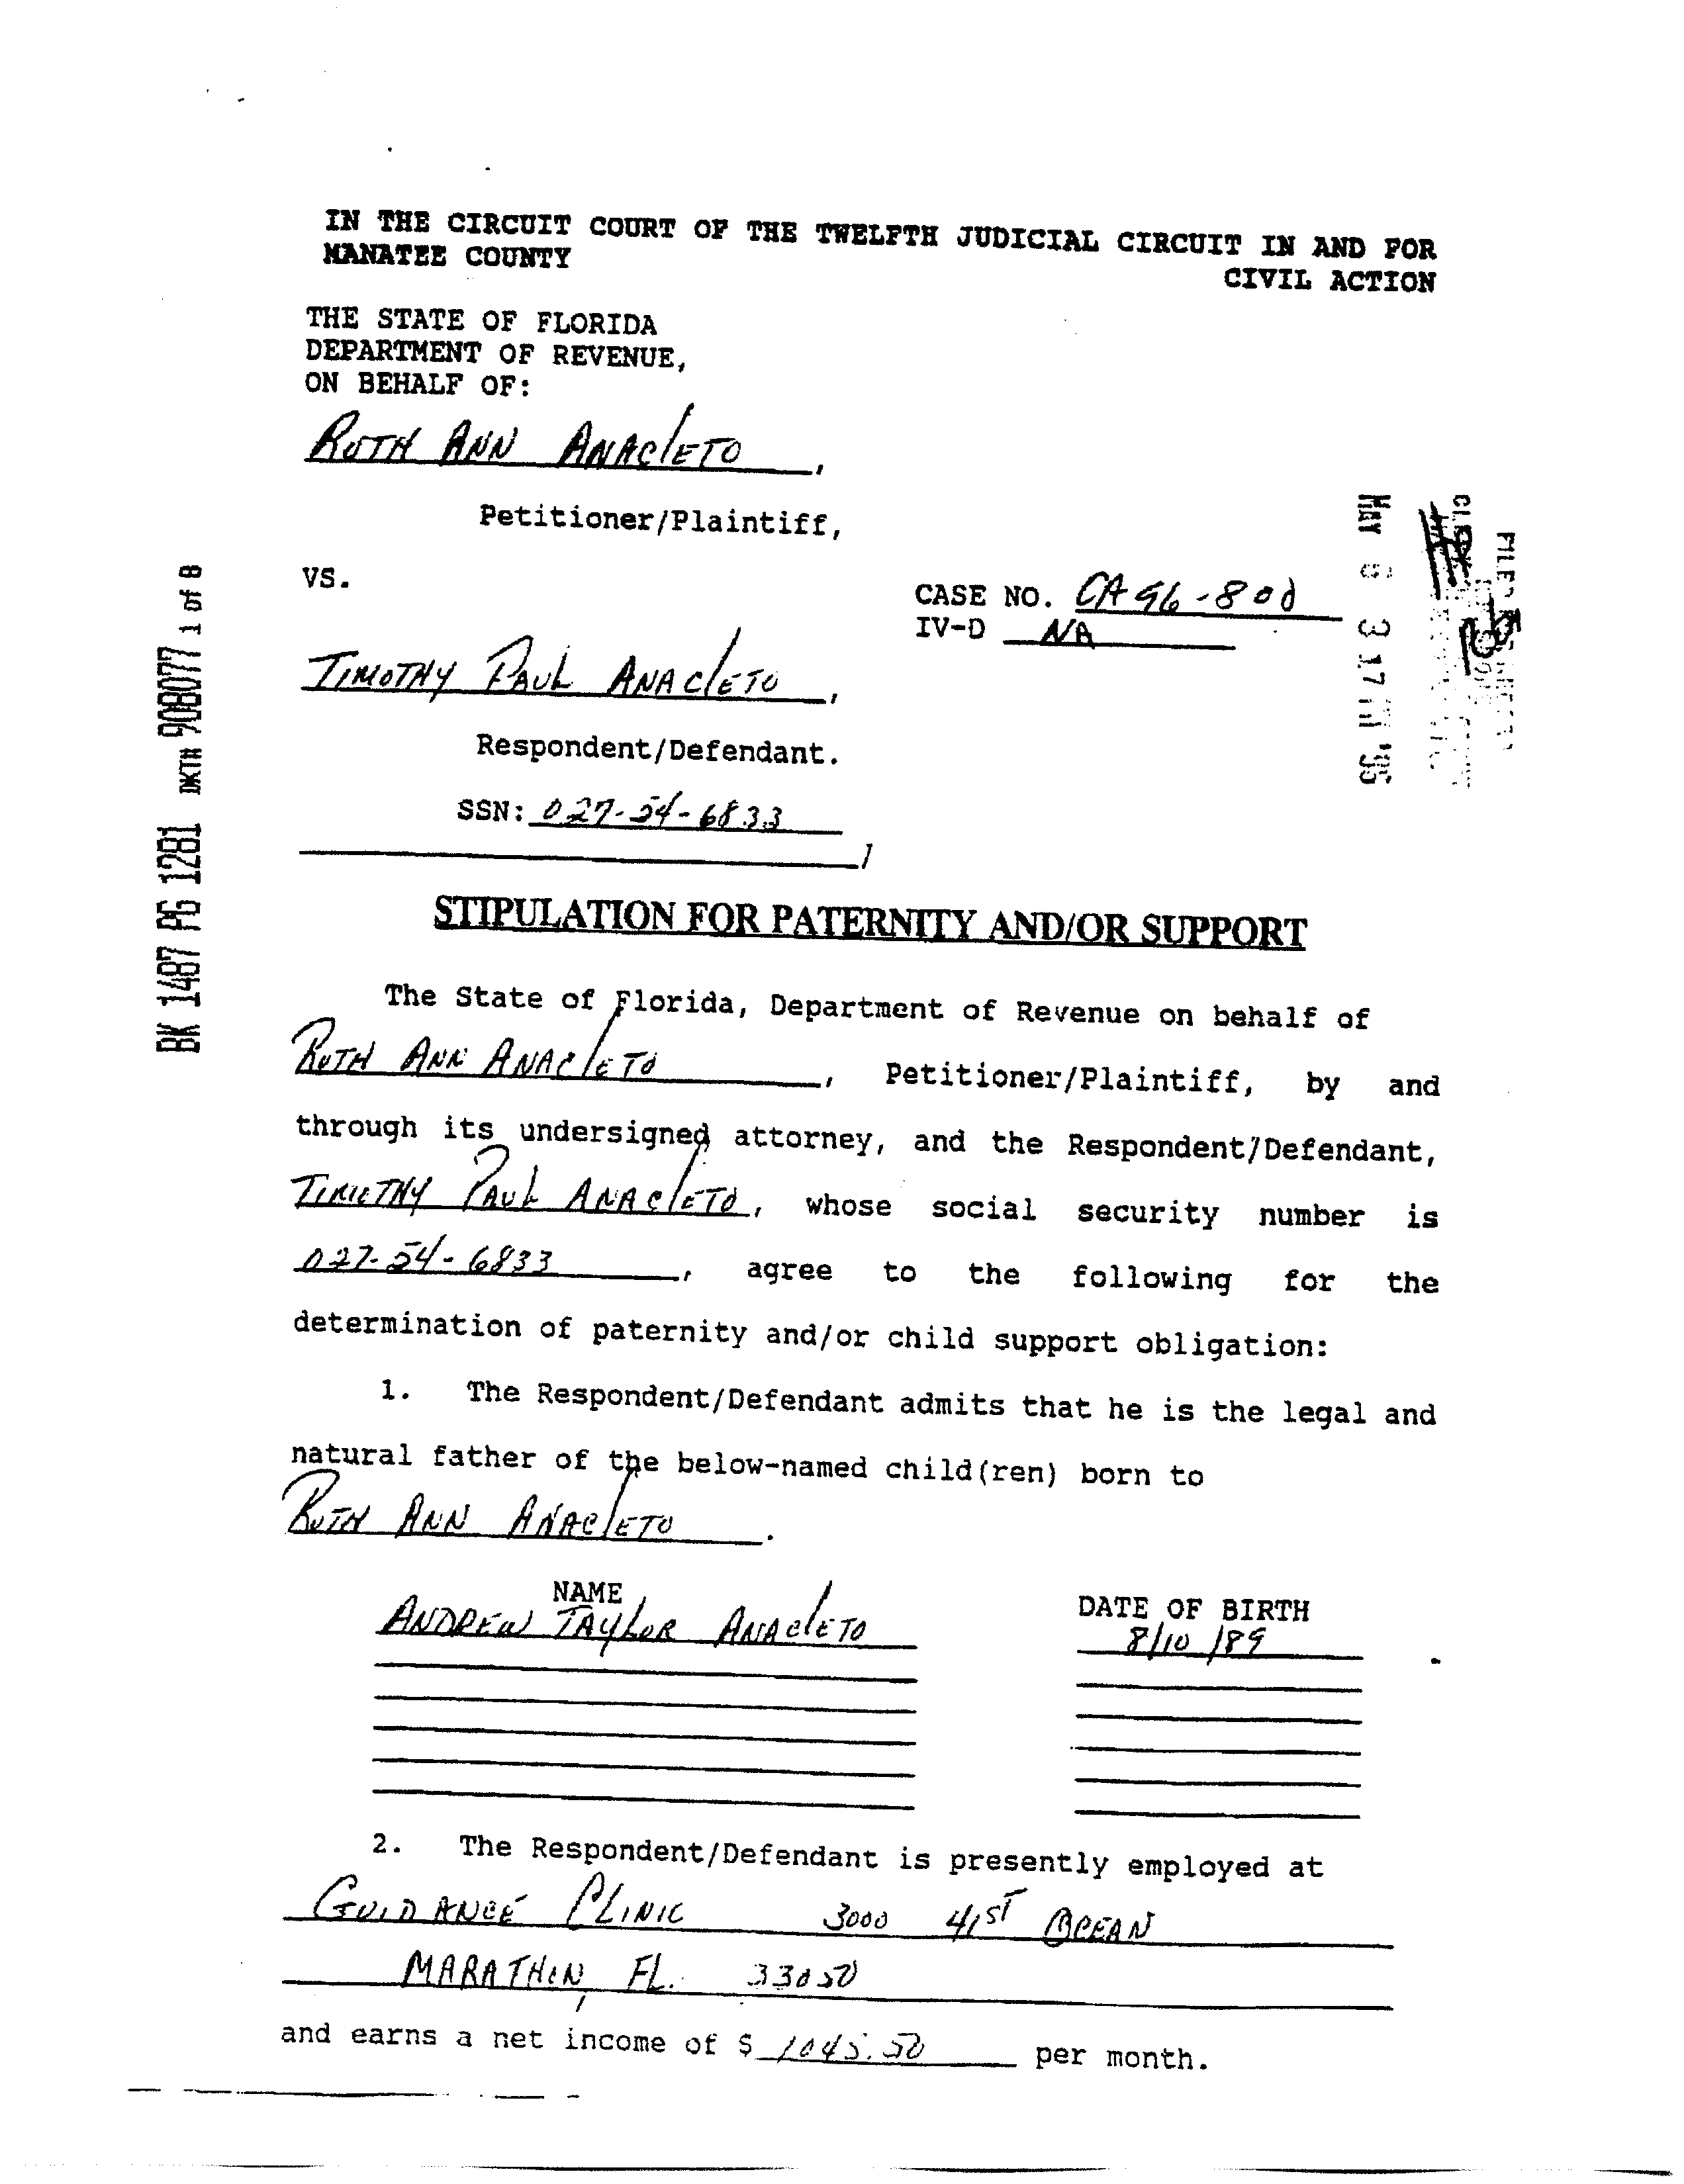 IN THE CIRCUIT COURT OF THE TWELFTH JUDICIAL CIRCUIT IN AND FOR
MANATEE COUNTY
CIVIL ACTION
THE STATE OF FLORIDA
DEPARTMENT OF REVENUE,
ON BEHALF OF:
RUTH ANN ANACLETO,
Petitioner/Plaintiff,
vs.
CASE NO. CA 96-800
IV-D NA
TIMOTHY PAUL ANACLETO,
Respondent/Defendant.
SSN: 027-54-6833
STIPULATION FOR PATERNITY AND/OR SUPPORT
The State of Florida, Department of Revenue on behalf of
RUTH ANN ANACLETO, Petitioner/Plaintiff, by and
through its undersigned attorney, and the Respondent/Defendant,
TIMOTHY PAUL ANACLETO, whose social security number is
027-54-6833, agree to the following for the
determination of paternity and/or child support obligation:
1. The Respondent/Defendant admits that he is the legal and
natural father of the below-named child(ren) born to
RUTH ANN ANACLETO.
NAME DATE OF BIRTH
ANDREW TAYLOR ANACLETO 8/10/89
2. The Respondent/Defendant is presently employed at
GUIDANCE CLINIC 3000 41ST OCEAN
MARATHON, FL. 33050
and earns a net income of $ 1045.50 per month.
BK 1487 PG 1281 DKT# 908077 1 of 8
MAY 3 17
FILED